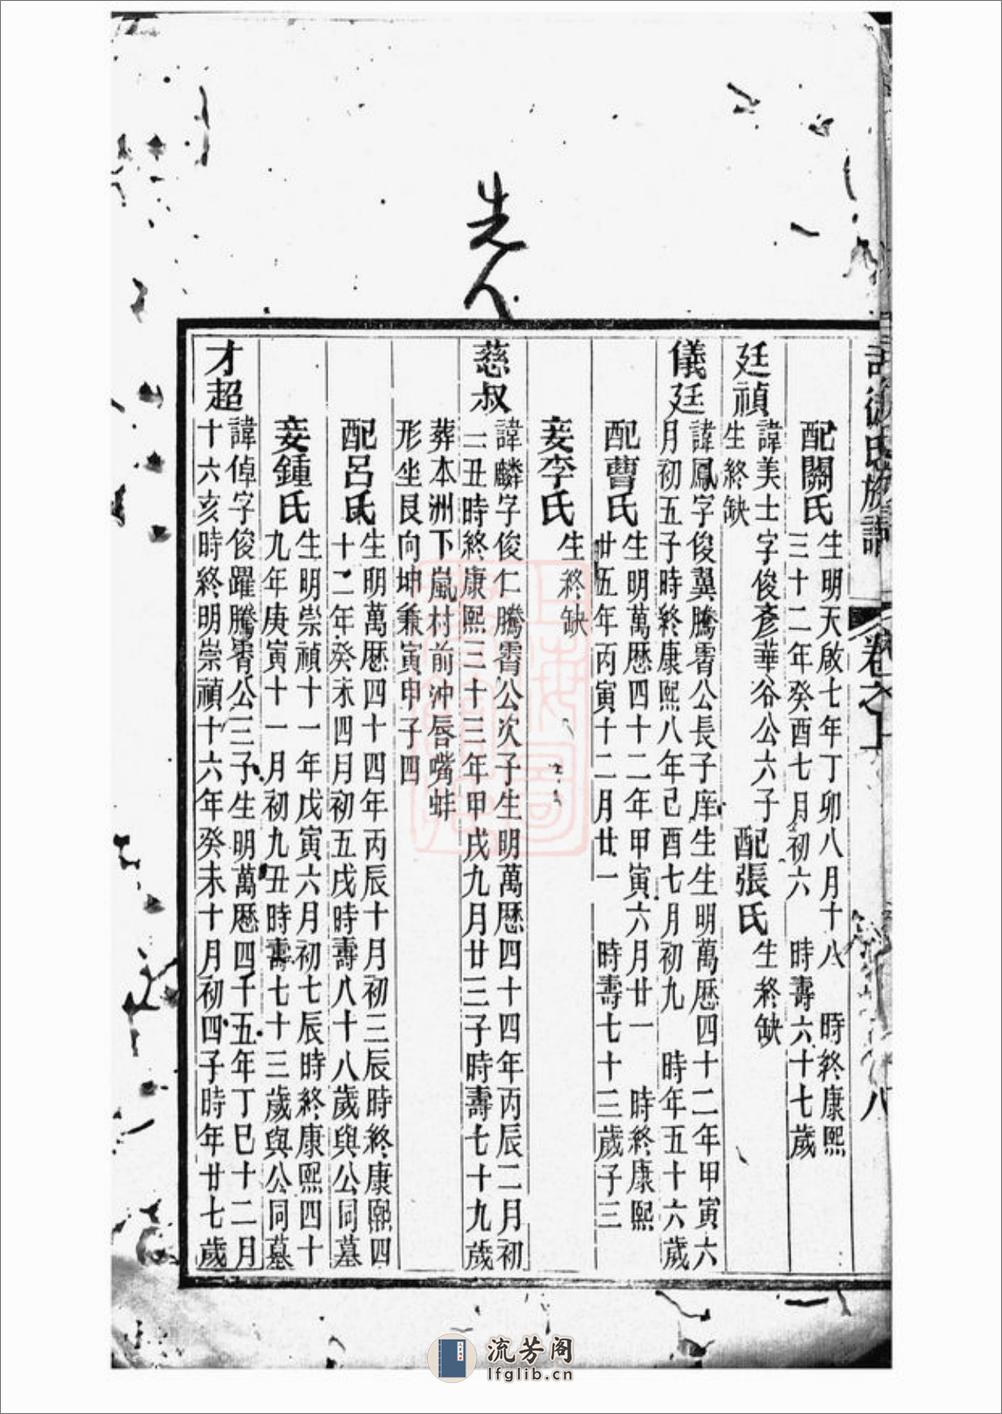 先人
徐氏族譜
卷之
八
配關氏
生明天啟七年丁卯八月十八　時終康熙
三十二年癸酉七月初六　時壽六十七歲
廷禎
諱美士字俊彥華谷公六子
配張氏
生終缺
生終缺
儀廷
諱鳳字俊翼騰霄公長子庠生生明萬曆四十二年甲寅六
月初五子時終康熙八年己酉七月初九　時年五十六歲
配曹氏
生明萬曆四十二年甲寅六月廿一　時終康熙
廿五年丙寅十二月廿一　時壽七十三歲子三
妾李氏
生終缺
慈叔
諱麟字俊仁騰霄公次子生明萬曆四十四年丙辰二月初
二丑時終康熙三十三年甲戌九月廿三子時壽七十九歲
葬本洲下嵐村前沖唇嘴蚌
形坐艮向坤兼寅申子四
配呂氏
生明萬曆四十四年丙辰十月初三辰時終康熙四
十二年癸未四月初五戌時壽八十八歲與公同墓
妾鍾氏
生明崇禎十一年戊寅六月初七辰時終康熙四十
九年庚寅十一月初九丑時壽七十三歲與公同墓
才超
諱倬字俊躍騰霄公三子生明萬曆四千五年丁巳十二月
十六亥時終明崇禎十六年癸未十月初四子時年廿七歲
流芳阁
lfglib.cn